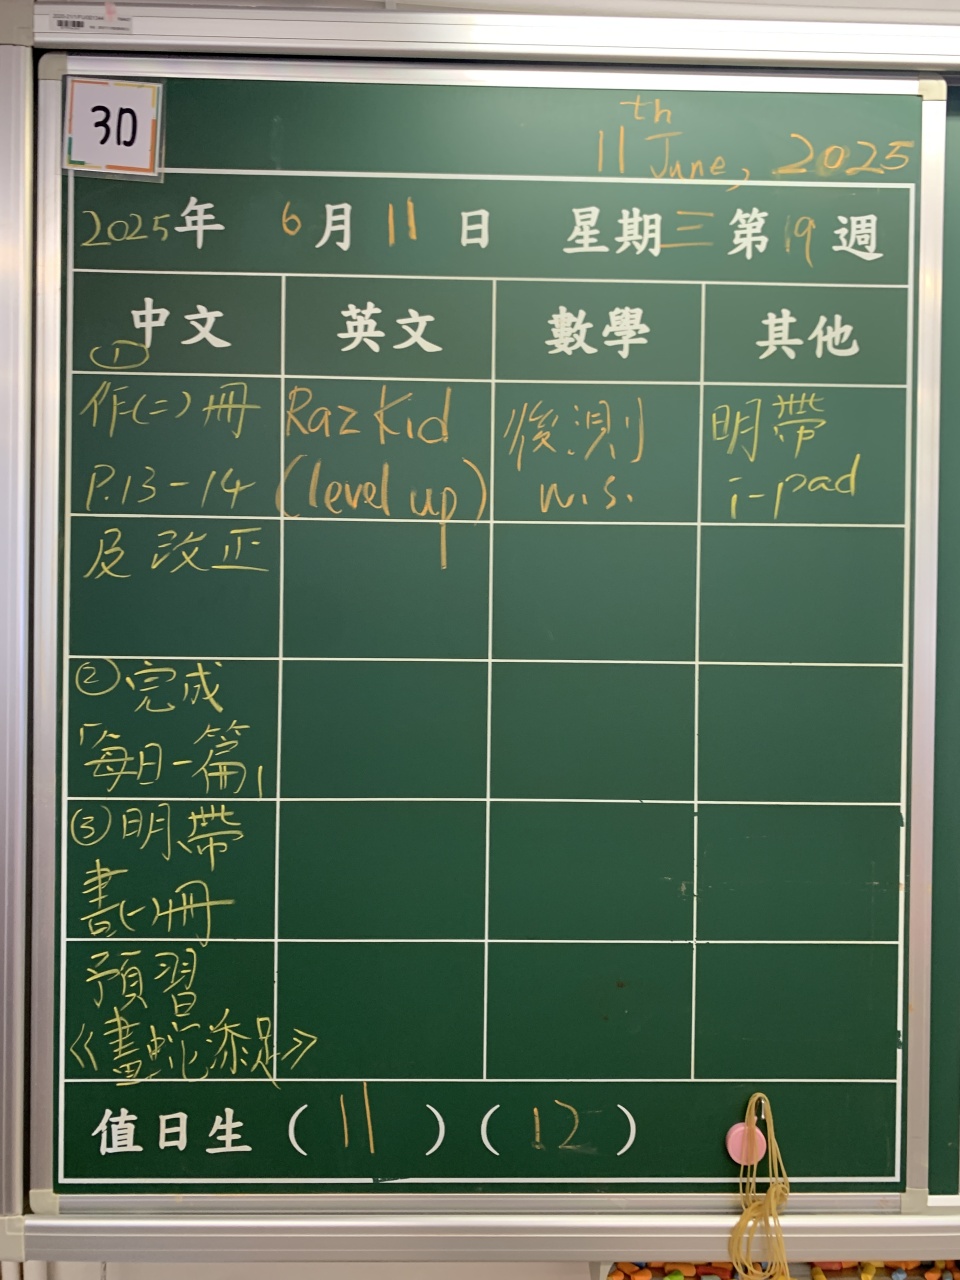 3D
11th June, 2025
2025年 6月11日 星期三 第19週
中文 英文 數學 其他
①
作(二)冊 Raz Kid 後測 明帶
P.13-14 (level up) w.s. i-pad
及改正
②完成
「每日一篇」
③明帶
書(一)冊
預習
《畫蛇添足》
值日生(11)(12)